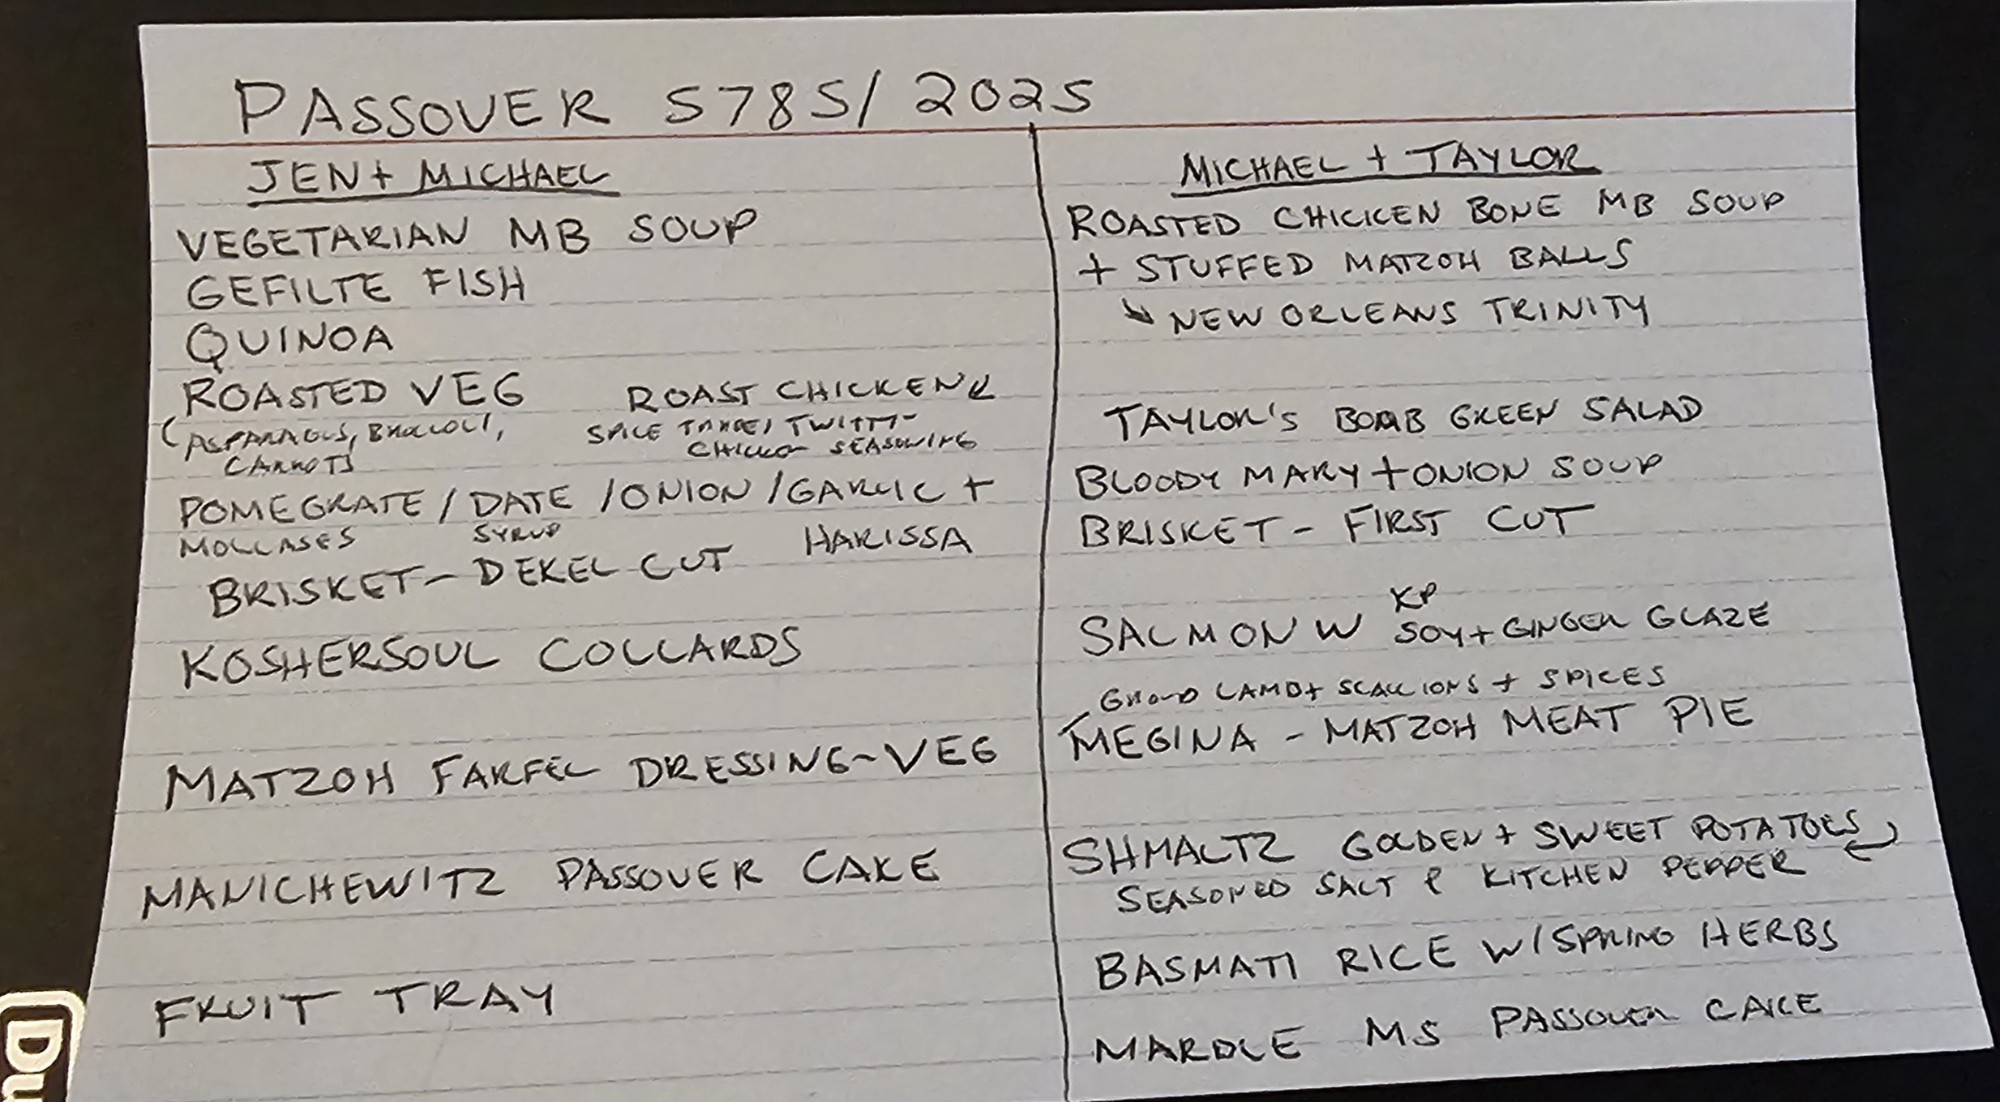 PASSOVER 5785/2025
JEN + MICHAEL
VEGETARIAN MB SOUP
GEFILTE FISH
QUINOA
ROASTED VEG
(ASPARAGUS, BROCCOLI,
CARROTS
ROAST CHICKEN
SPICE TWITTY
CHICKEN SEASONING
POMEGRATE / DATE / ONION / GARLIC +
MOLLASES SYRUP HARISSA
BRISKET - DEKEL CUT
KOSHERSOUL COLLARDS
MATZOH FARFEL DRESSING - VEG
MANICHEWITZ PASSOVER CAKE
FRUIT TRAY
MICHAEL + TAYLOR
ROASTED CHICKEN BONE MB SOUP
+ STUFFED MATZOH BALLS
↘ NEW ORLEANS TRINITY
TAYLOR'S BOMB GREEN SALAD
BLOODY MARY + ONION SOUP
BRISKET - FIRST CUT
KP
SALMON W SOY + GINGER GLAZE
GROUND LAMB + SCALLIONS + SPICES
MEGINA - MATZOH MEAT PIE
SHMALTZ GOLDEN + SWEET POTATOES
SEASONED SALT & KITCHEN PEPPER
BASMATI RICE W/ SPRING HERBS
MARBLE MS PASSOVER CAKE
Du